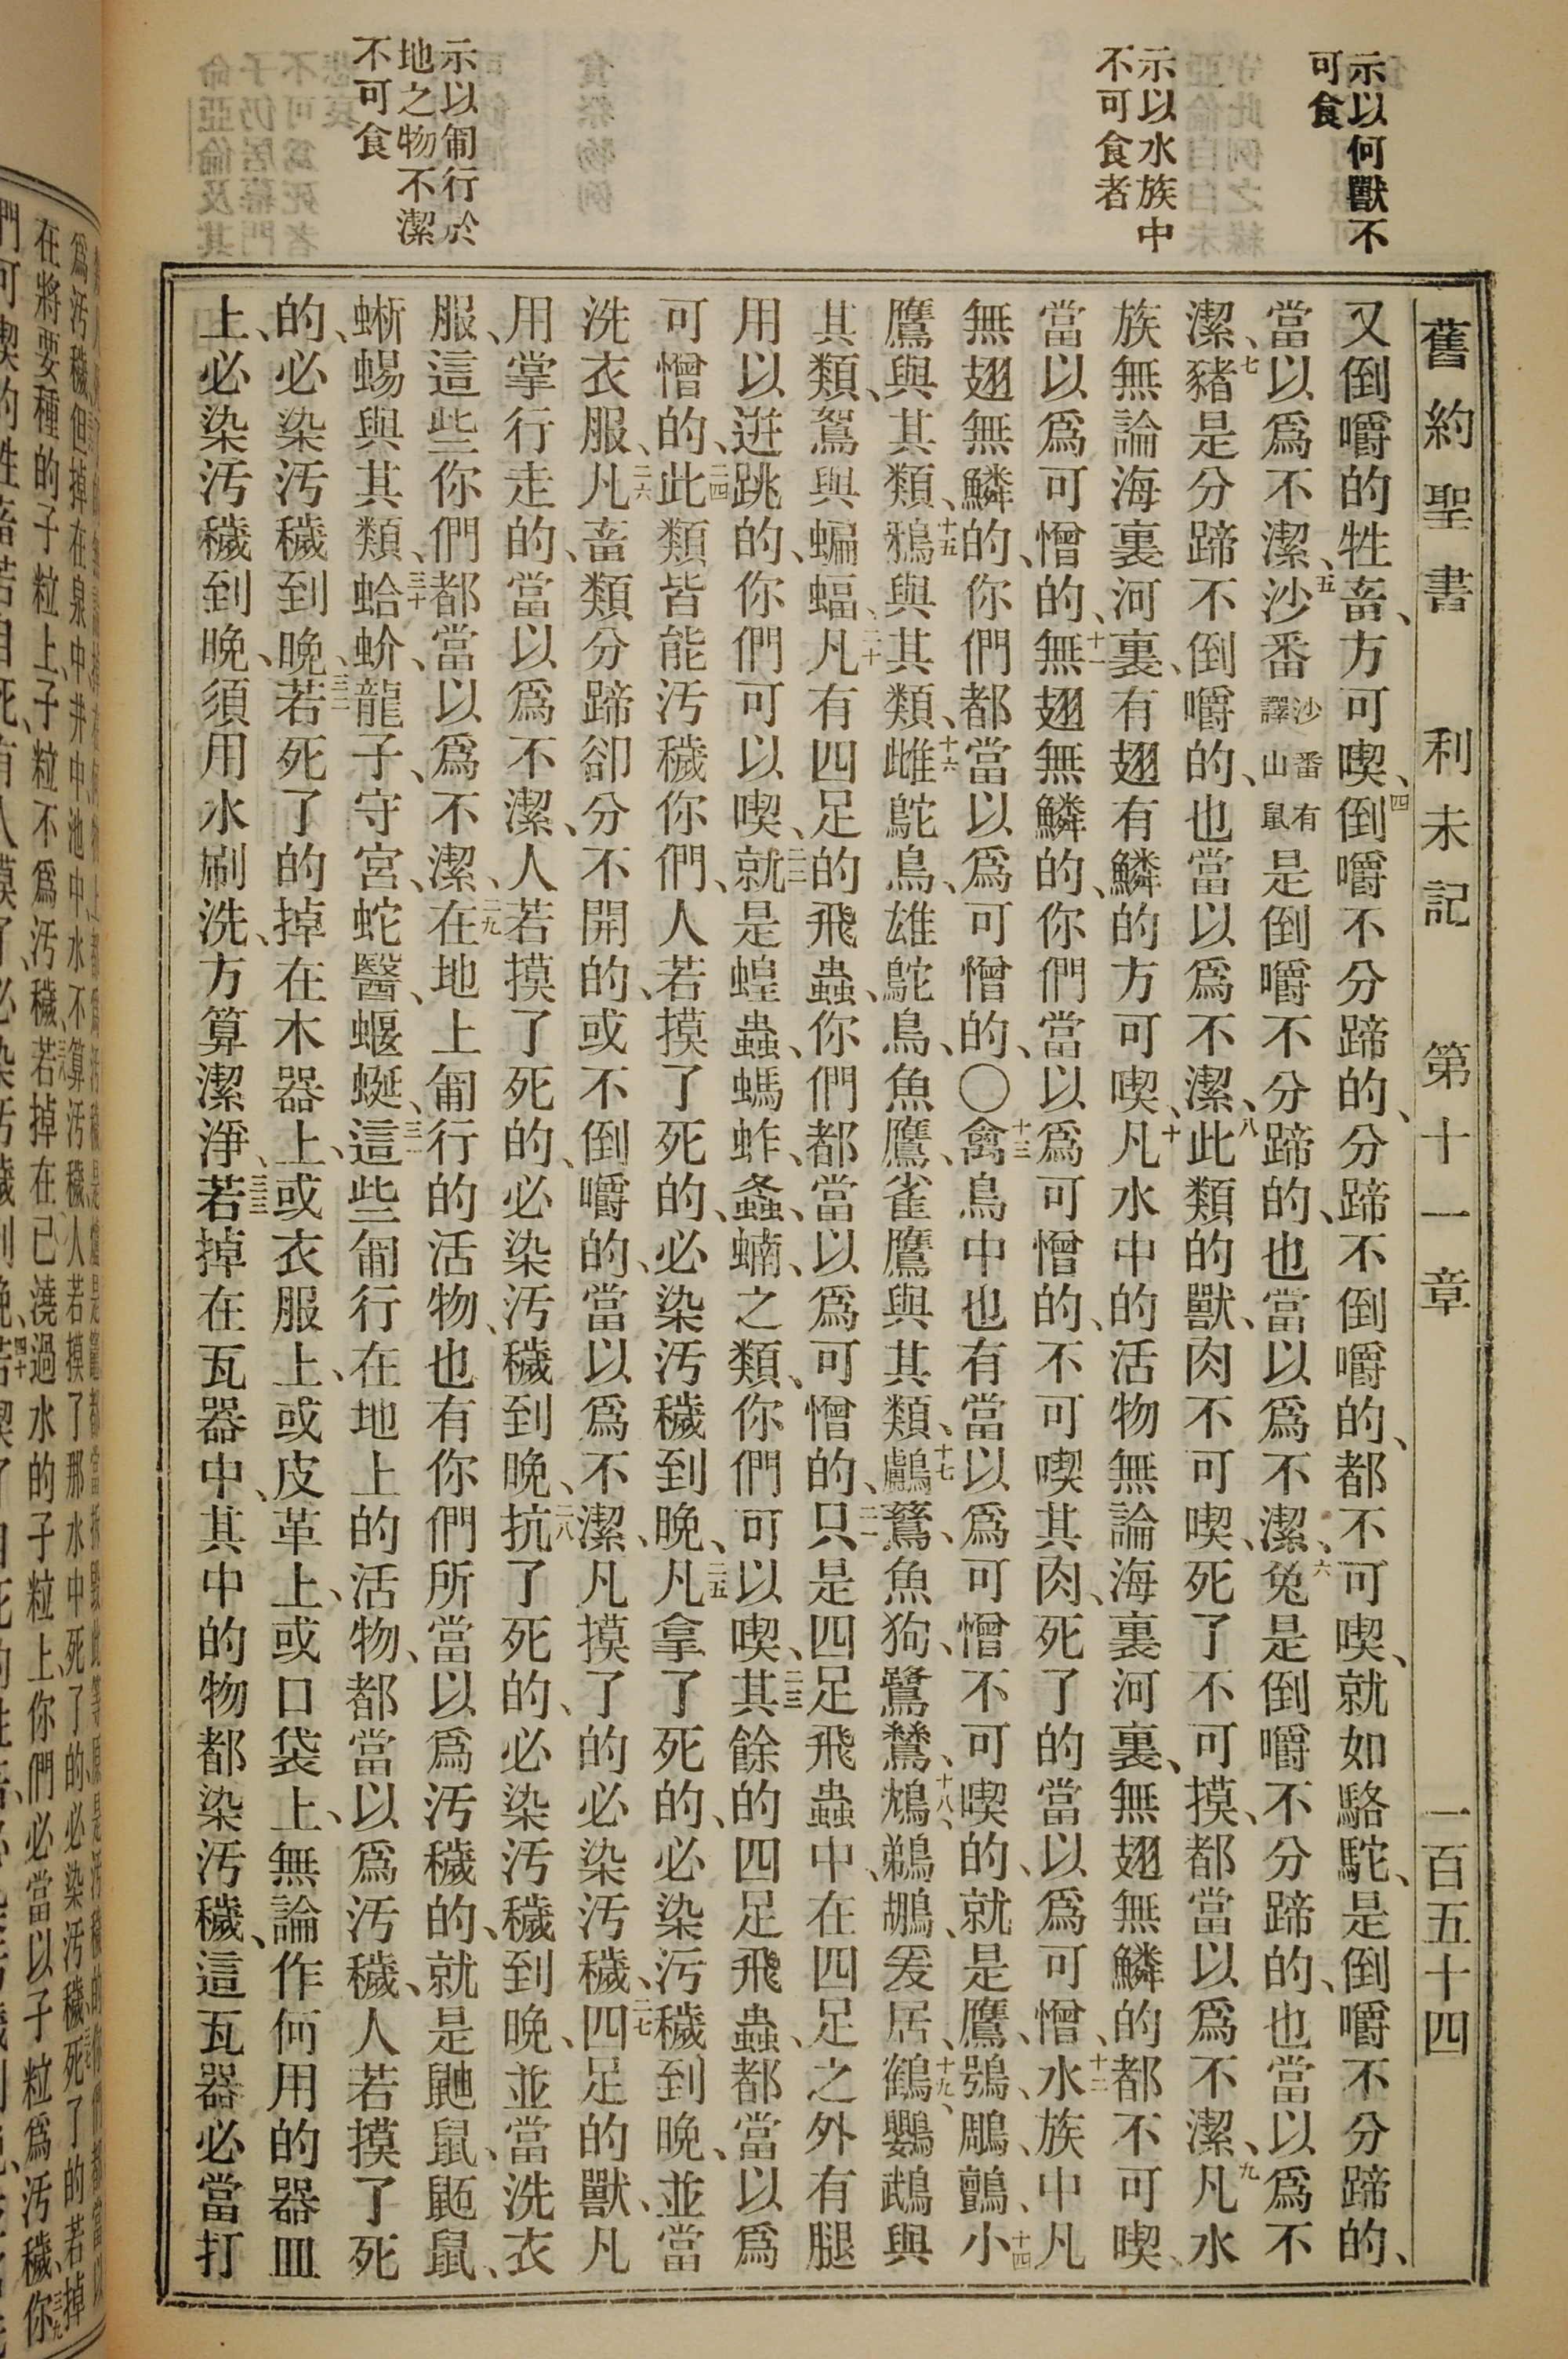 示以何獸不
可食
示以水族中
不可食者
示以匍行於
地之物不潔
不可食
舊約聖書 利未記 第十一章 一百五十四
又倒嚼的牲畜、方可喫、四倒嚼不分蹄的、分蹄不倒嚼的、都不可喫、就如駱駝、是倒嚼不分蹄的、
當以爲不潔、五沙番沙番有譯山鼠是倒嚼不分蹄的、也當以爲不潔、六兔是倒嚼不分蹄的、也當以爲不
潔、七豬是分蹄不倒嚼的、也當以爲不潔、八此類的獸、肉不可喫、死了不可摸、都當以爲不潔、九凡水
族無論海裏河裏、有翅有鱗的方可喫、十凡水中的活物無論海裏河裏、無翅無鱗的都不可喫、
當以爲可憎的、十一無翅無鱗的、你們當以爲可憎的、不可喫其肉、死了的當以爲可憎、十二水族中凡
無翅無鱗的、你們都當以爲可憎的、〇十三禽鳥中也有當以爲可憎不可喫的、就是鷹、鶚、鵰、鸇、十四小
鷹與其類、十五鴉與其類、十六雌鴕鳥、雄鴕鳥、魚鷹、雀鷹與其類、十七鸕鶿、魚狗、鷺鶿、十八鴆、鵜鶘、爰居、十九鶴、鸚鵡與
其類、鴽與蝙蝠、二十凡有四足的飛蟲、你們都當以爲可憎的、二一只是四足飛蟲中、在四足之外有腿
用以逬跳的、你們可以喫、二二就是蝗蟲、螞蚱、螽蝻、之類、你們可以喫、二三其餘的四足飛蟲、都當以爲
可憎的、二四此類皆能汚穢你們、人若摸了死的、必染汚穢到晚、二五凡拿了死的、必染污穢到晚、並當
洗衣服、二六凡畜類分蹄卻分不開的、或不倒嚼的、當以爲不潔、凡摸了的必染汚穢、二七四足的獸、凡
用掌行走的、當以爲不潔、人若摸了死的、必染汚穢到晚、二八抗了死的、必染汚穢到晚、並當洗衣
服、這些你們都當以爲不潔、二九在地上匍行的活物、也有你們所當以爲汚穢的、就是鼬鼠、鼫鼠、
蜥蜴與其類、三十蛤蚧、龍子、守宮、蛇醫、蝘蜓、三一這些匍行在地上的活物、都當以爲汚穢、人若摸了死
的、必染汚穢到晚、三二若死了的掉在木器上、或衣服上、或皮革上、或口袋上、無論作何用的器皿
上、必染汚穢到晚、須用水刷洗、方算潔淨、三三若掉在瓦器中、其中的物都染汚穢、這瓦器必當打